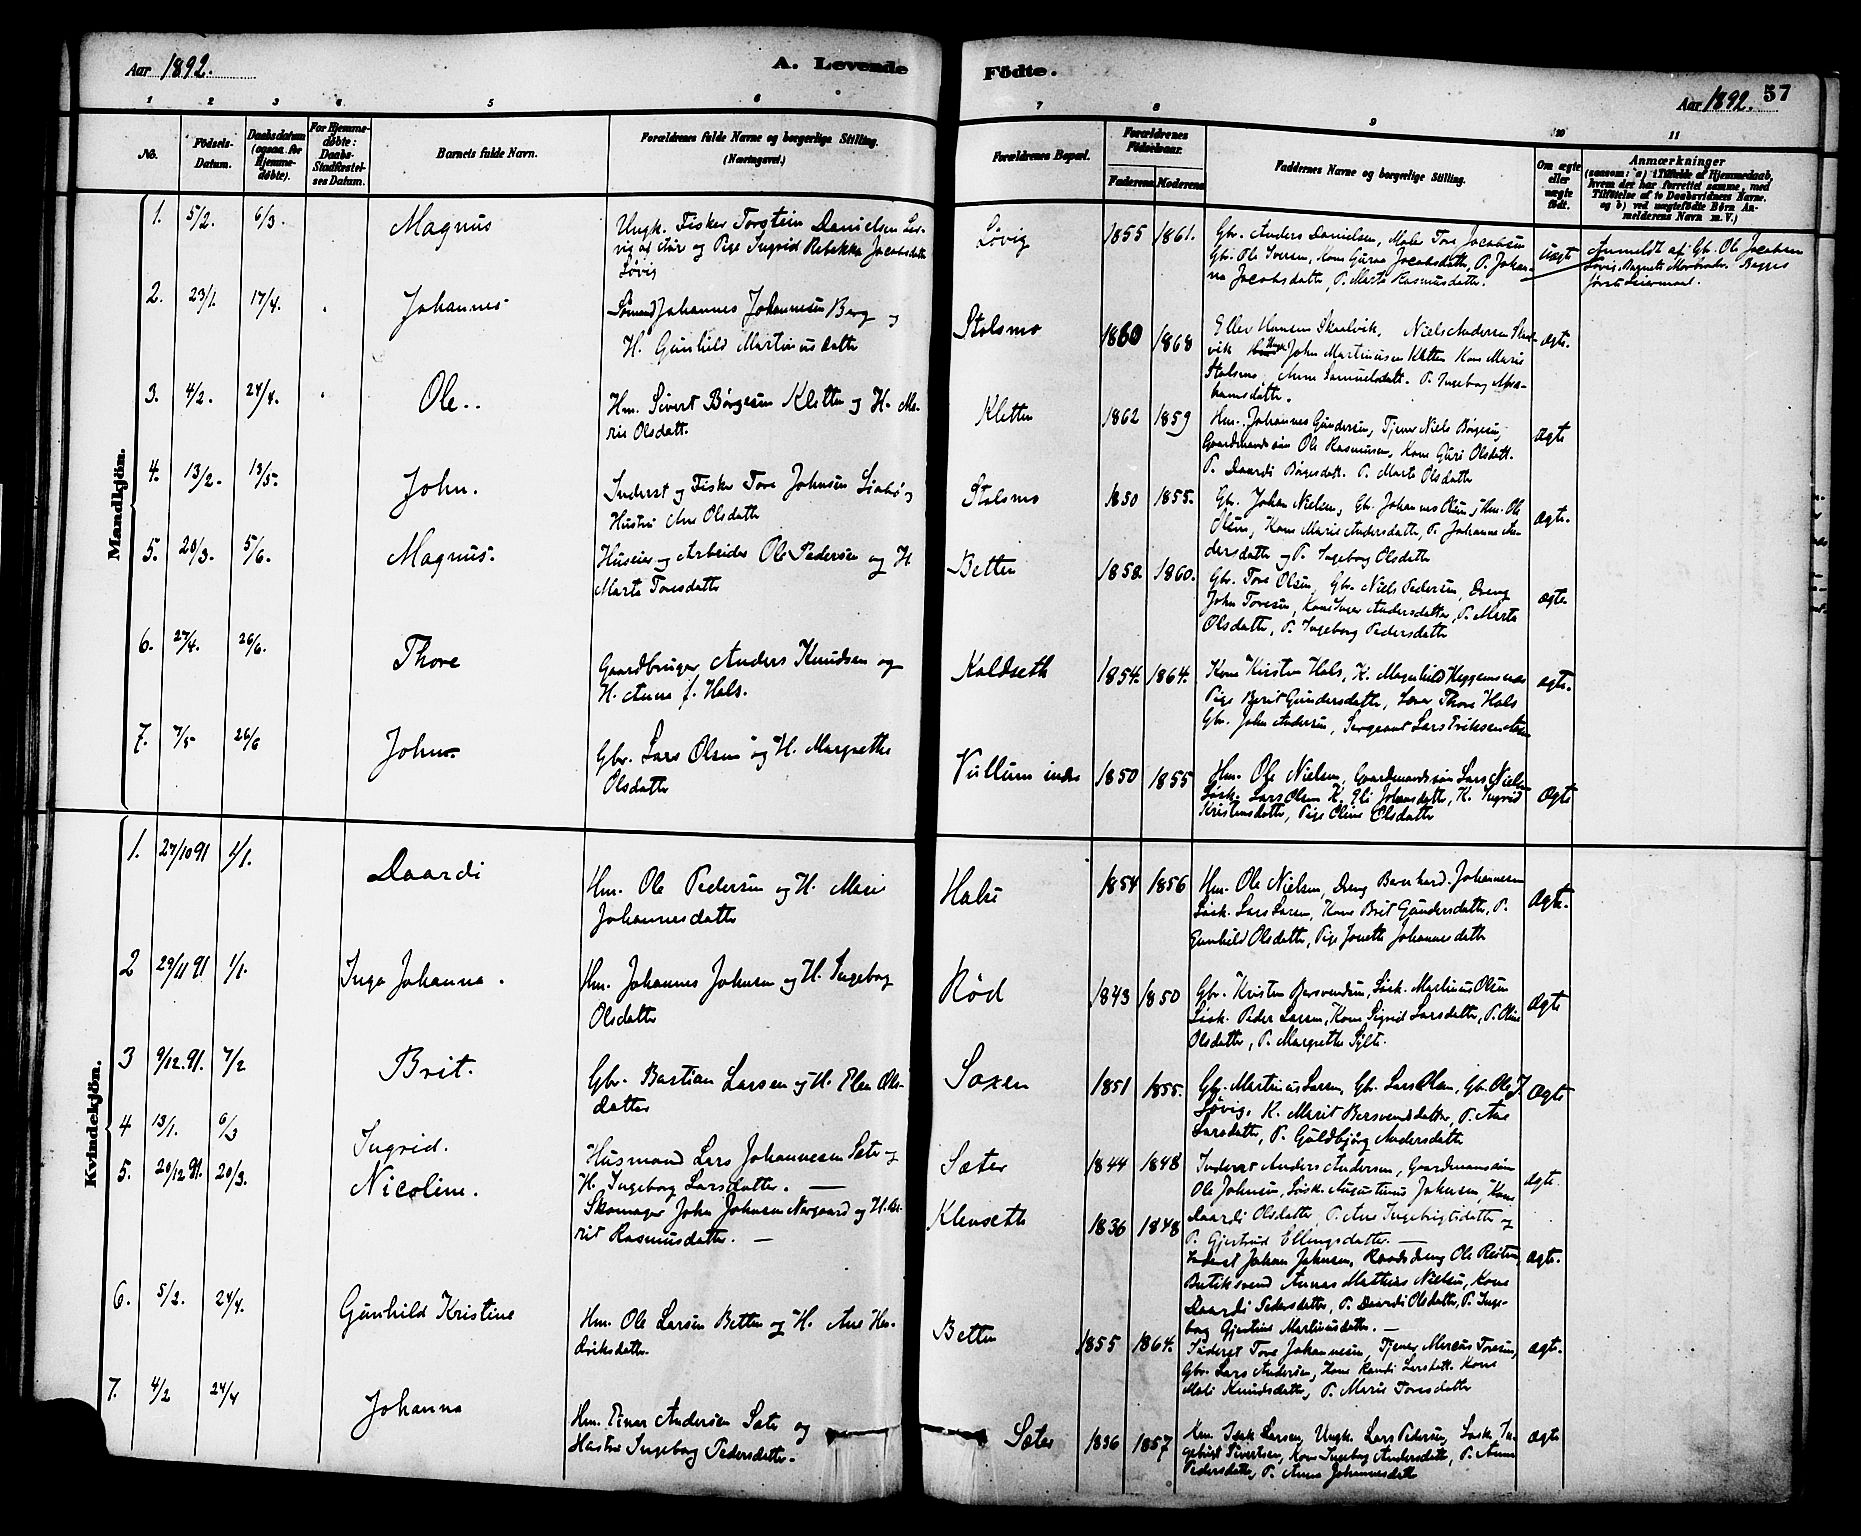 Aar 1892.
A. Levende
Födte.
Aar 1892.
57
1
2
3
4
5
6
7
8
9
10
11
No.
Födsels-
Datum.
Daabsdatum
(ogsaa for
Hjemme-
døbte).
For Hjemme-
døbte:
Daabs-
Stadfæstel-
ses Datum.
Barnets fulde Navn.
Forældrenes fulde Navne og borgerlige Stilling.
(Næringsvei.)
Forældrenes Bopæl.
Forældrenes
Födselsaar.
Faderens
Moderens
Faddernes Navne og borgerlige Stilling.
Om ægte
eller
uægte
født.
Anmærkninger
(saasom: a) i Tilfælde af Hjemmedaab,
hvem der har forrettet samme, med
Tilføielse af to Daabsvidners Navne.
og b) ved uægtefødte Børn An-
melderens Navn m. V.)
Mandkjön.
1. 5/2. 6/3. Magnus
Ungk. Fisker Torstein Danielsen Lør-
vig og Pige Ingrid Rebekka Jacobsdatter
Løvig
Løvig 1855 1861.
Gbr. Anders Danielsen, Maler Tore Jacobsen
Gbr. Ole Iversen, Kone Guroe Jacobsdatter, P. Johan-
na Jacobsdatter, P. Marta Rasmusdatter.
uægte
Anmeldt af Gbr. Ole Jacobsen
Løvig, Barnets Morbroder. Begges
første Leiermaal.
2. 23/1. 17/4. Johannes
Sømand Johannes Johannesen Berg og
H. Gunhild Martinusdatter
Stolsmo 1860 1868
Eller Hansen Skaalvik, Niels Andersen Skaal-
vik Ungk. John Martinusen Kletten Kone Marie
Stolsmo, Anne Samuelsdatt. P. Ingeborg Abra-
hamsdatter.
ægte.
3. 4/2. 24/4. Ole..
Hm. Sivert Børgesen Kletten og H. Ma-
rie Olsdatt.
Kletten 1862 1859
Hm. Johannes Gundersen, Tjener Niels Børgesen,
Gaardmandssøn Ole Rasmusen, Kone Guri Olsdatt.
P. Daardi Børgesdatt. P. Marta Olsdatter
ægte
4. 13/2. 13/5. John.
Inderst og Fisker Tore Johnsen og
Hustru Ane Olsdatter
Stolsmo 1850 1855.
Gbr. Johan Nielsen, Gbr. Johannes Olsen, Hm. Ole
Olsen, Kone Marie Andersdatter, P. Johanna An-
dersdatter og P. Ingeborg Olsdatter
ægte.
5. 20/3. 5/6. Magnus.
Huseier og Arbeider Ole Pedersen og H.
Marta Toresdatter
Betten 1858. 1860.
Gbr. Tore Olsen, Gbr. Niels Pedersen, Dreng
John Toresen, Kone Inger Andersdatter, P. Marta
Olsdatter, P. Ingeborg Pedersdatter
ægte.
6. 27/4. 26/6. Thore
Gaardbruger Anders Knudsen og
H. Anna f. Hals.
Kaldseth 1854. 1864.
Kone Kirsten Hals, K. Magnhild Heggemsnes
Pige Berit Gundersdatter, Lærer Thore Hals
Gbr. John Andersen, Sergeant Lars Eriksen Aasen
ægte.
7. 7/5 26/6 John
Gbr. Lars Olsen og H. Margrethe
Olsdatter
Vullum indre 1850 1855
Hm. Ole Nielsen, Gaardmandssøn Lars Nielsen
Løsk. Lars Olsen K. Eli Johansdatter, K. Ingrid
Kristensdatter, Pige Oline Olsdatter
ægte
Kvindekjön.
1. 27/10 91 1/1. Daardi
Hm. Ole Pedersen og H. Marie
Johannesdatter
Halse 1854 1856
Hm. Ole Nielsen, Dreng Bernhard Johannesen
Løsk. Lars Larsen, Kone Brit Gundersdatter, P.
Gunhild Olsdatter, Pige Jonetta Johannesdatter
ægte.
2 29/11 91 1/1. Inga Johanna.
Hm. Johannes Johnsen og H. Ingeborg
Olsdatter
Rød 1843 1850
Gbr. Kristen Bersvendsen, Løsk. Martinus Olsen
Løsk. Peder Larsen, Kone Sigrid Larsdatter, P. Oline
Olsdatter, P. Margrethe Sylte.
ægte
3 9/12.91. 7/2 Brit.
Gbr. Bastian Larsen og H. Elen Ols-
datter
Saxen 1851 1855.
Gbr. Martinus Larsen, Gbr. Lars Olsen, Gbr. Ole J.
Løvig, K. Marit Bersvendsdatter, P. Ane
Larsdatter, P. Guldbjørg Andersdatter
ægte
4 13/1. 6/3 Ingrid.
Husmand Lars Johannesen Sæter og
H. Ingeborg Larsdatter. —
Sæter 1844 1848
Inderst Anders Andersen, Gaardmandssøn
Ole Johnsen, Løsk. Augustinus Johnsen, Kone
Daardi Olsdatter, P. Ane Ingebrigtsdatter og
P. Gjertrud Ellingsdatter. —
ægte.
5. 20/12 91. 20/3. Nicoline.
Skomager John Johnsen Nørgaard og H. Be-
rit Rasmusdatter. —
Klenseth 1836 1848
Inderst Johan Johnsen, Dreng Ole Reiten,
Butiksvend Annas Mathias Nielsen, Kone
Daardi Pedersdatter, P. Daardi Olsdatter, P. Inge-
borg Gjertine Martinusdatter. —
ægte.
6. 5/2. 24/4. Gunhild Kristine
Hm. Ole Larsen Betten og H. Ane Hen-
driksdatter.
Betten 1855 1864.
Inderst Tore Johannesen, Tjener Marcus Toresen,
Gbr. Lars Andersen, Kone Randi Larsdatt. Kone
Mali Knudsdatter, P. Marie Toresdatter
ægte.
7. 4/2 24/4 Johanna
Hm. Einar Andersen Sæter og
Hustru Ingeborg Pedersdatter.
Sæter 1836 1857
Hm. Isak Larsen, Ungk. Lars Pedersen, Løsk. In-
gebrigt Sivertsen, Kone Ingeborg Andersdatter, P. Anne
Pedersdatter, P. Anne Johannesdatter
ægte